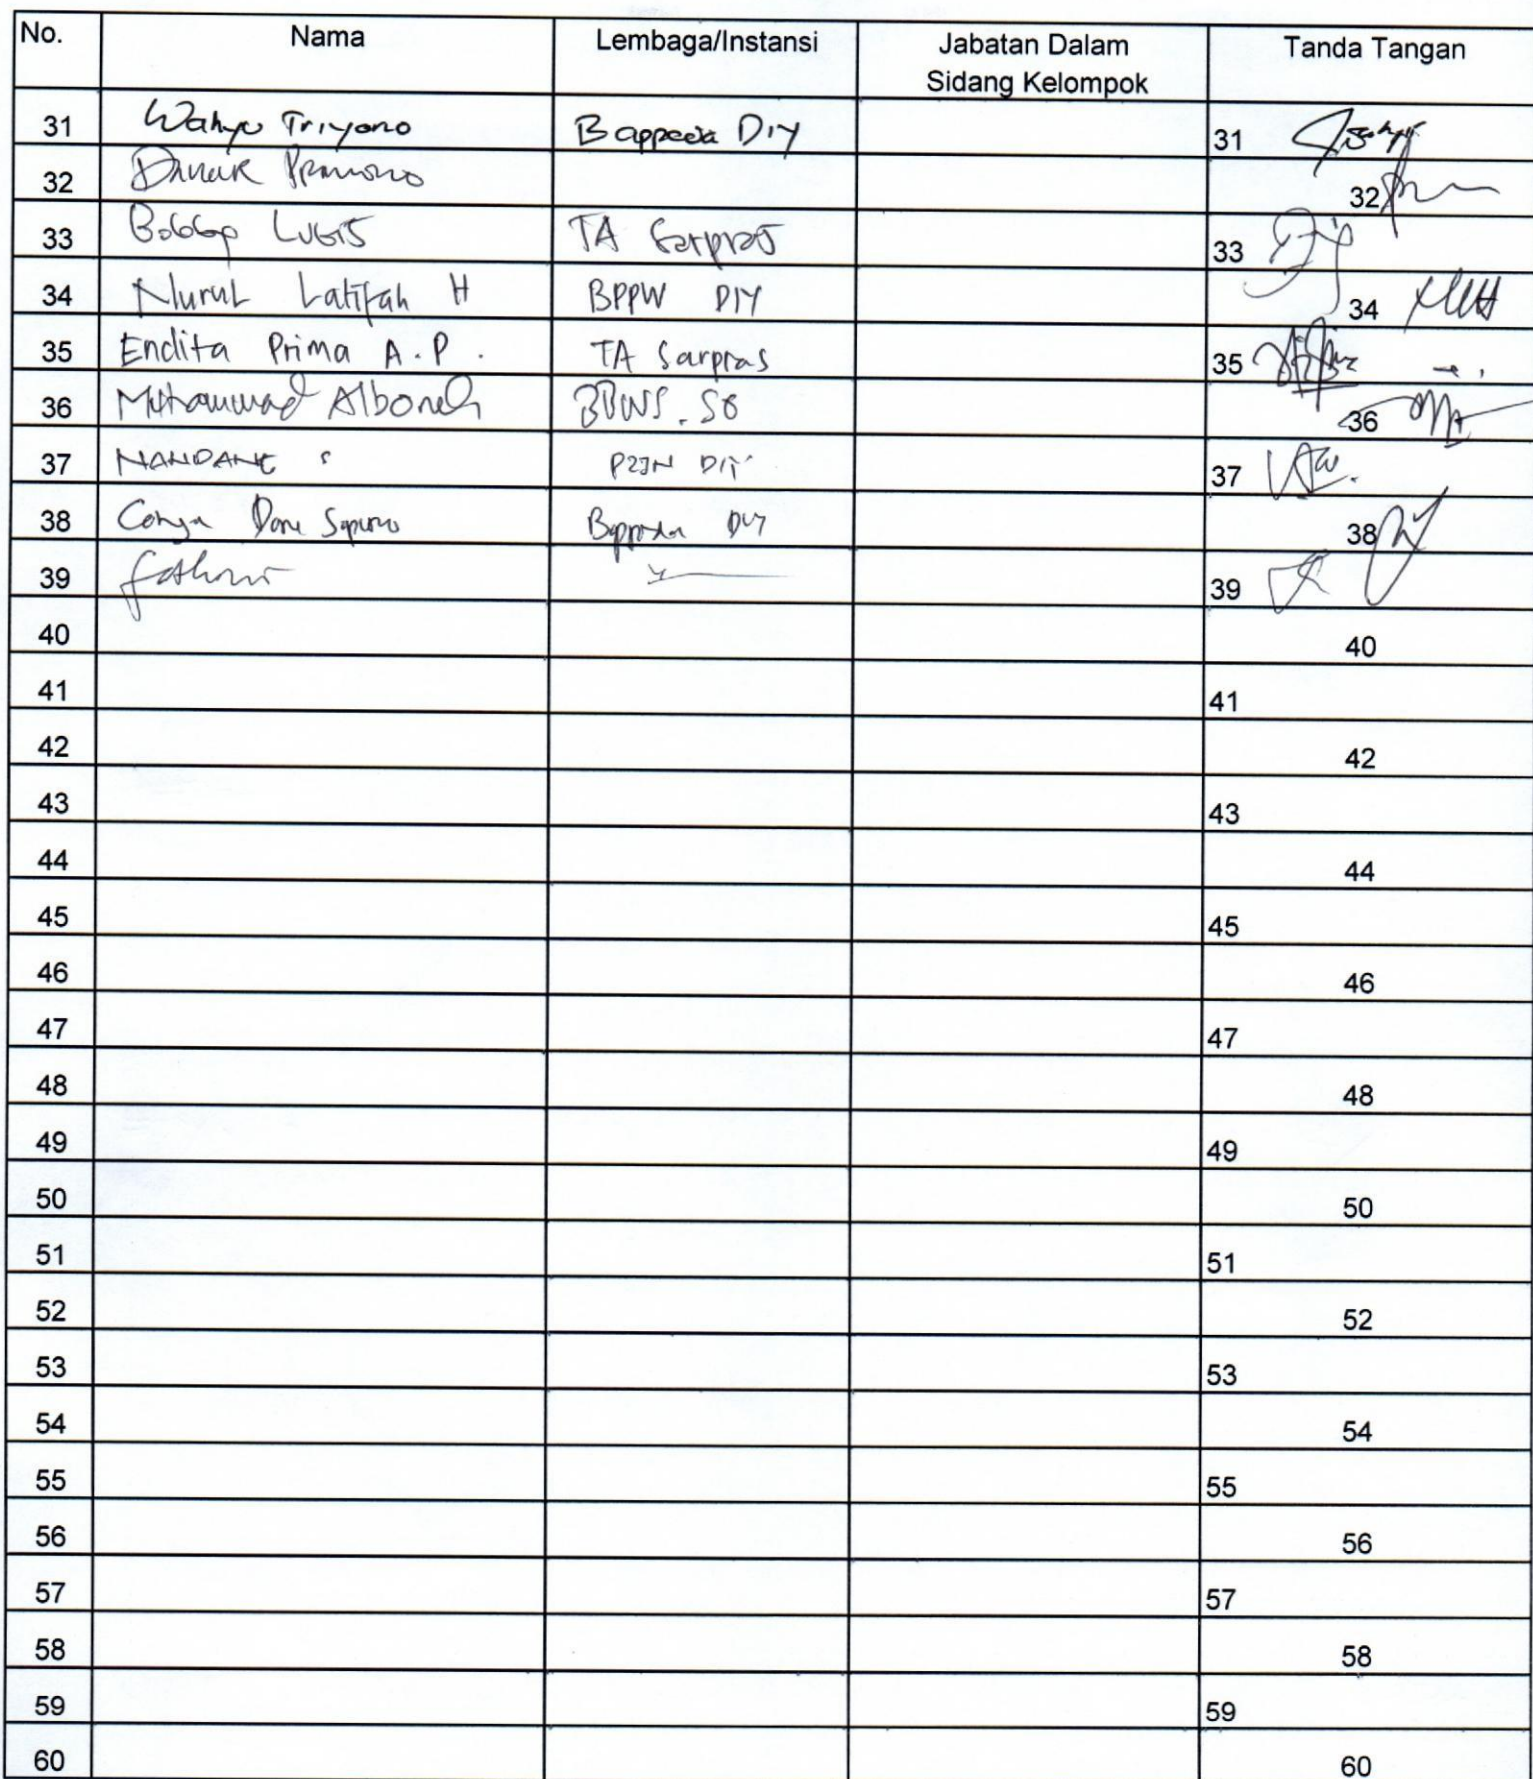 No. Nama Lembaga/Instansi Jabatan Dalam Sidang Kelompok Tanda Tangan
31 Wahyu Triyono Bappeda DIY 31
32 Danar 32
33 TA Sarpras 33
34 Nurul Latifah H BPPW DIY 34
35 Endita Prima A.P. TA Sarpras 35
36 Muhammad 36
37 P2JN DIY 37
38 Bappeda DIY 38
39 39
40 40
41 41
42 42
43 43
44 44
45 45
46 46
47 47
48 48
49 49
50 50
51 51
52 52
53 53
54 54
55 55
56 56
57 57
58 58
59 59
60 60